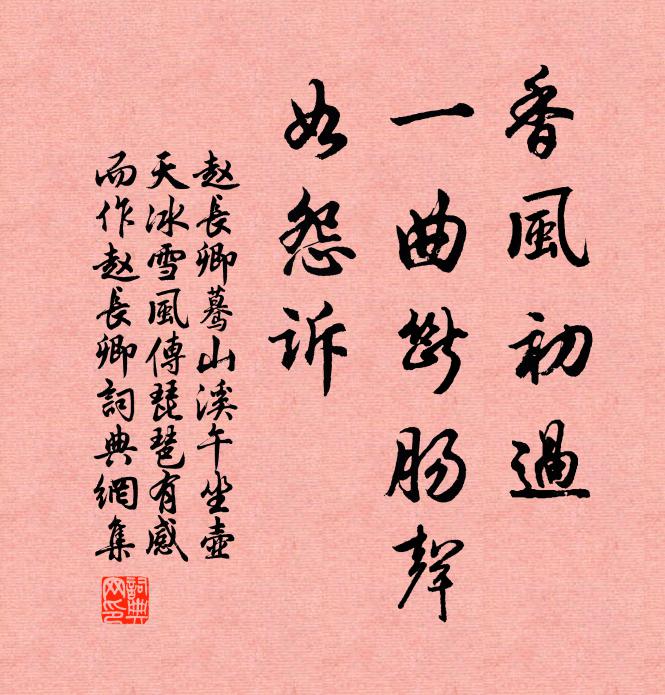 香風初過
一曲斷肠聲
如怨訴
赵長卿蓦山溪午坐壺
天冰雪風傳琵琶有感
而作赵長卿詞典網集
詞典網印